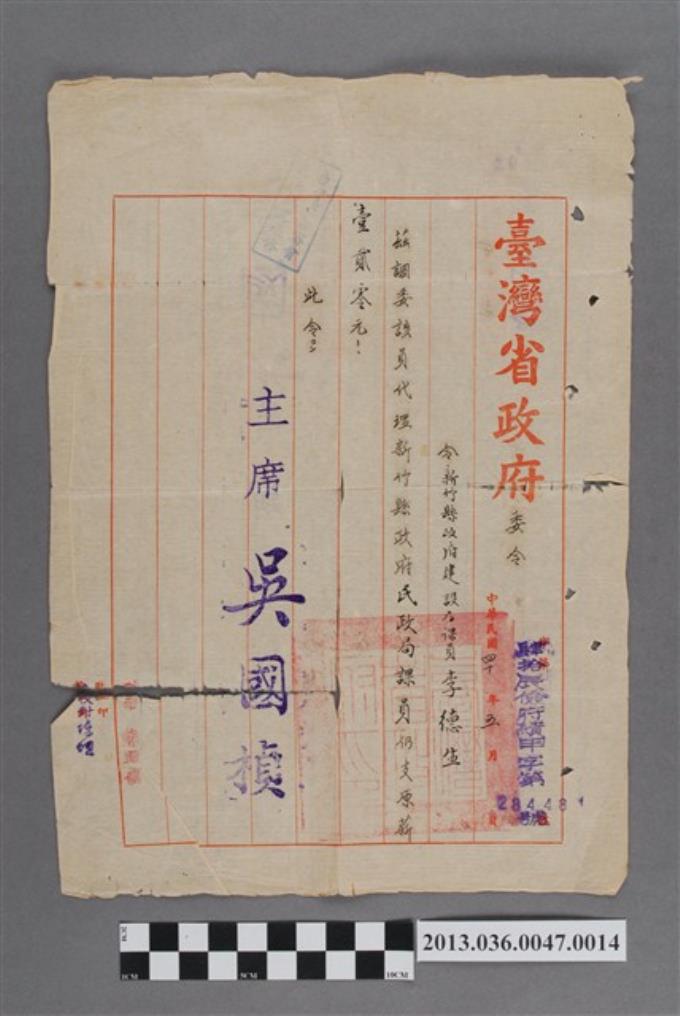 臺灣省政府委令
中華民國四十年五月 日
肆拾辰儉府績甲字第
28448號
令新竹縣政府建設局課員李德生
茲調委該員代理新竹縣政府民政局課員仍支原薪
壹貳零元!
此令!
主席吳國楨
2013.036.0047.0014
1CM
5CM
10CM